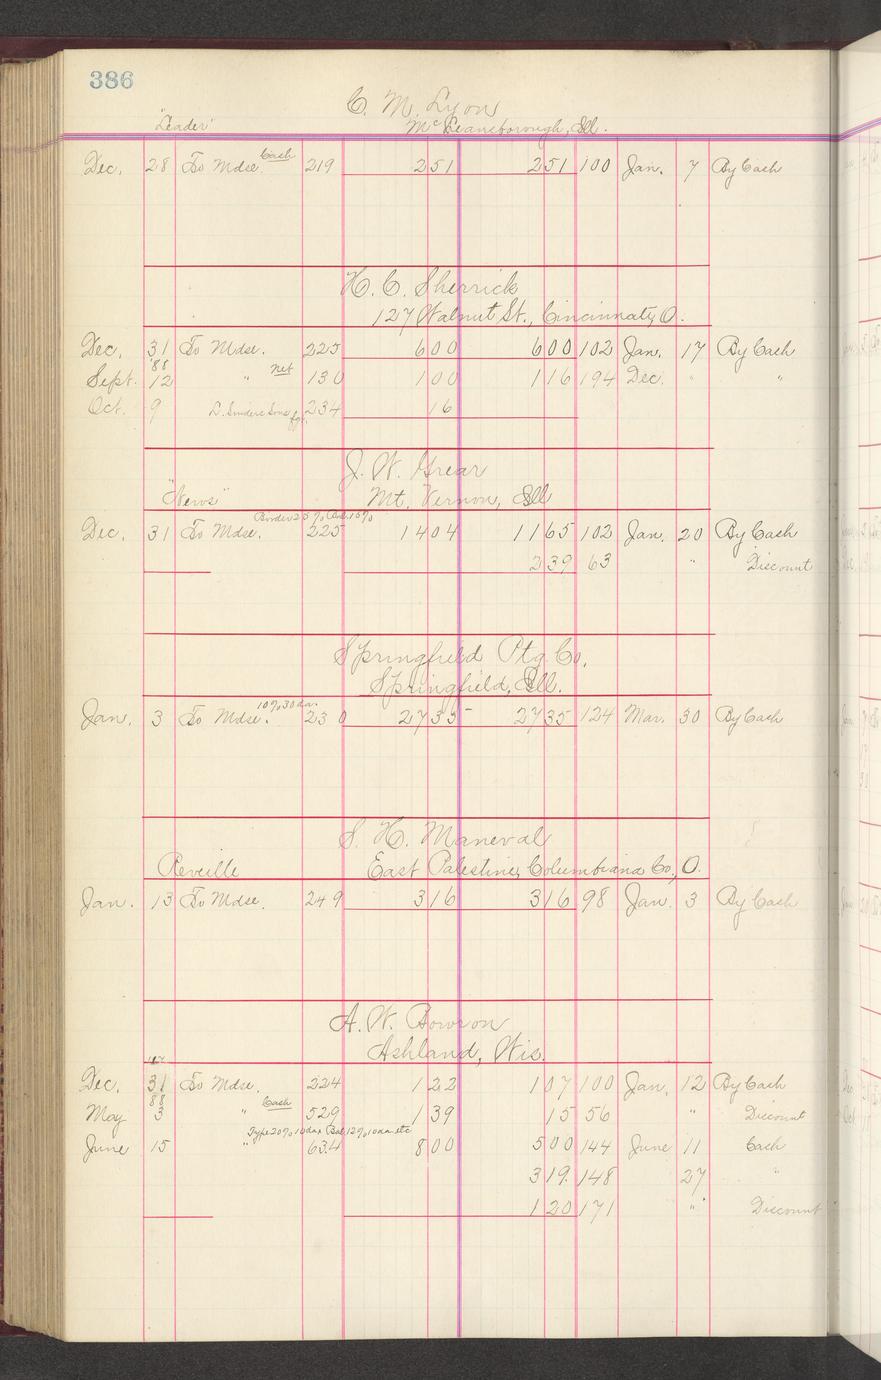 386
C. M. Lyon
"Leader" McLeansborough, Ill.
Cash
Dec. 28 To Mdse. 219 251 251 100 Jan. 7 By Cash
H. C. Sherrick
127 Walnut St., Cincinnaty, O.
Dec. 31 To Mdse. 225 600 600 102 Jan. 17 By Cash
'88 Net
Sept. 12 " 130 100 116 194 Dec. " "
Oct. 9 234 16
J. W. Grear
"News" Mt. Vernon, Ill
Border 25%
Dec. 31 To Mdse. 225 1404 1165 102 Jan. 20 By Cash
239 63 " Discount
Springfield Ptg. Co.
Springfield, Ill.
10% 30 da.
Jan. 3 To Mdse. 230 2735 2735 124 Mar. 30 By Cash
S. H. Maneval
Reveille East Palestine, Columbiana Co., O.
Jan. 13 To Mdse. 249 316 316 98 Jan. 3 By Cash
A. W. Bowron
Ashland, Wis.
'87
Dec. 31 To Mdse. 224 122 107 100 Jan. 12 By Cash
88 Cash
May 3 " 529 139 15 56 " Discount
Type 20% 10 da. Bal. 12% 10 da. etc
June 15 " 634 800 500 144 June 11 Cash
319 148 27 "
120 171 " Discount